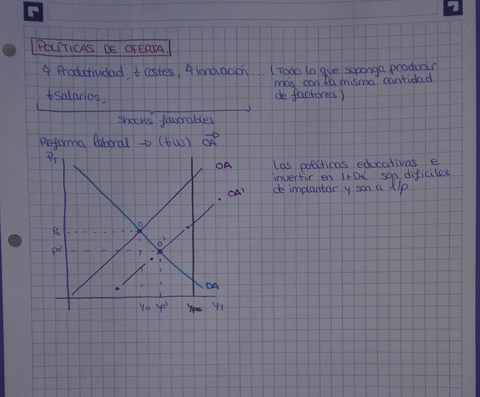 POLÍTICAS DE OFERTA
↑ Productividad, ↓ costes, ↑ innovación... (Todo lo que suponga producir
más con la misma cantidad
de factores)
↓ Salarios,
shocks favorables
Reforma laboral → (↓w) OA
PT
OA
OA'
Las políticas educativas e
invertir en I+Di son difíciles
de implantar y son a l/p.
P0
0
P0'
0'
DA
Y0 Y0' Ype YT